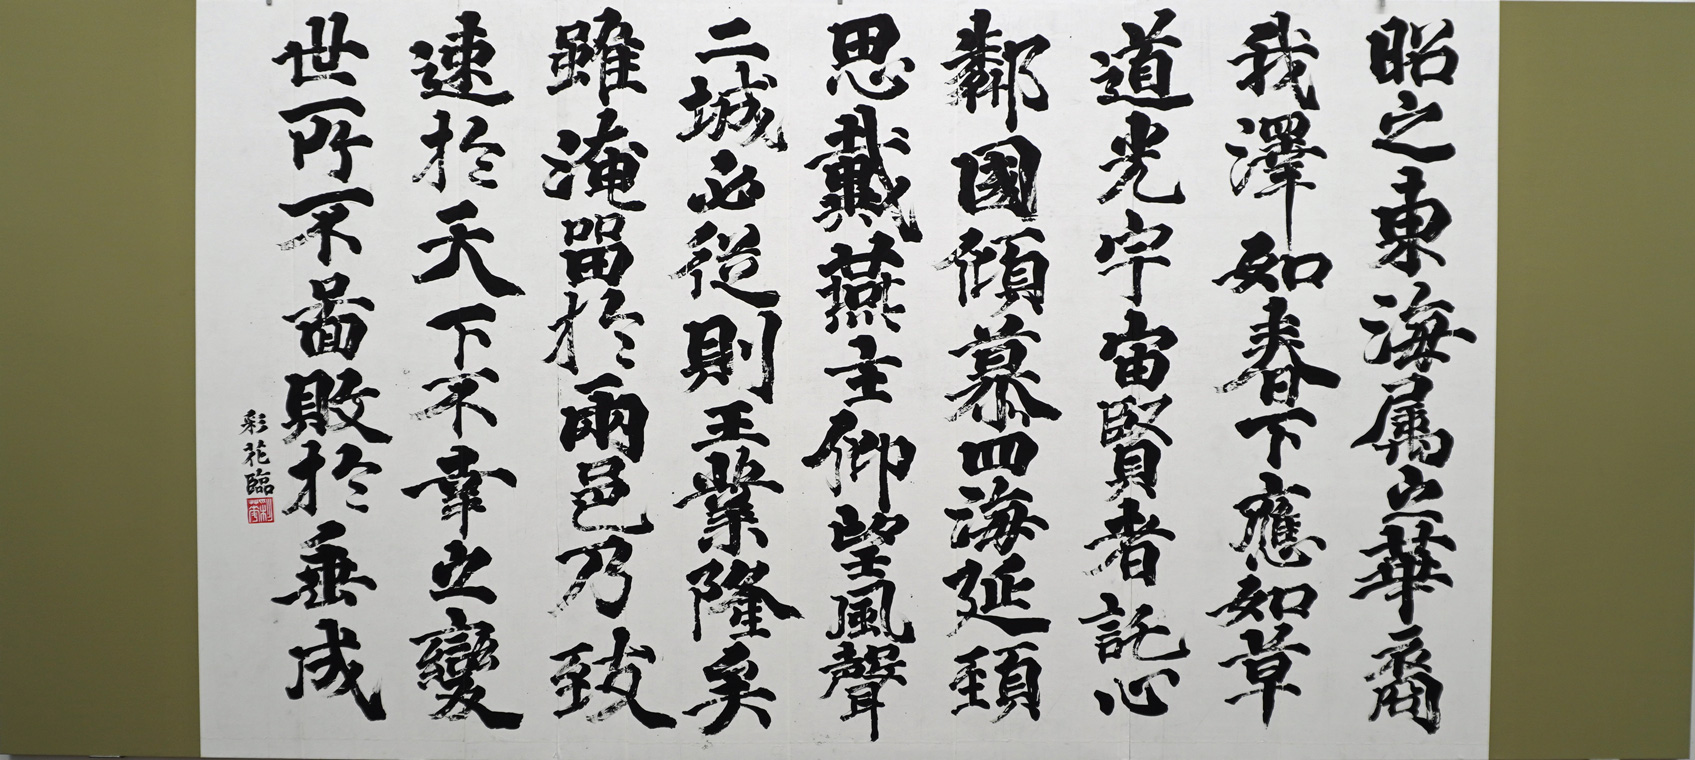 昭之東海属之華裔
我澤如春下應如草
道光宇宙賢者託心
鄰國傾慕四海延頚
思戴燕主仰望風聲
二城必從則王業隆矣
雖淹留於兩邑乃致
速於天下不幸之變
世所不啚敗於垂成
彩花臨